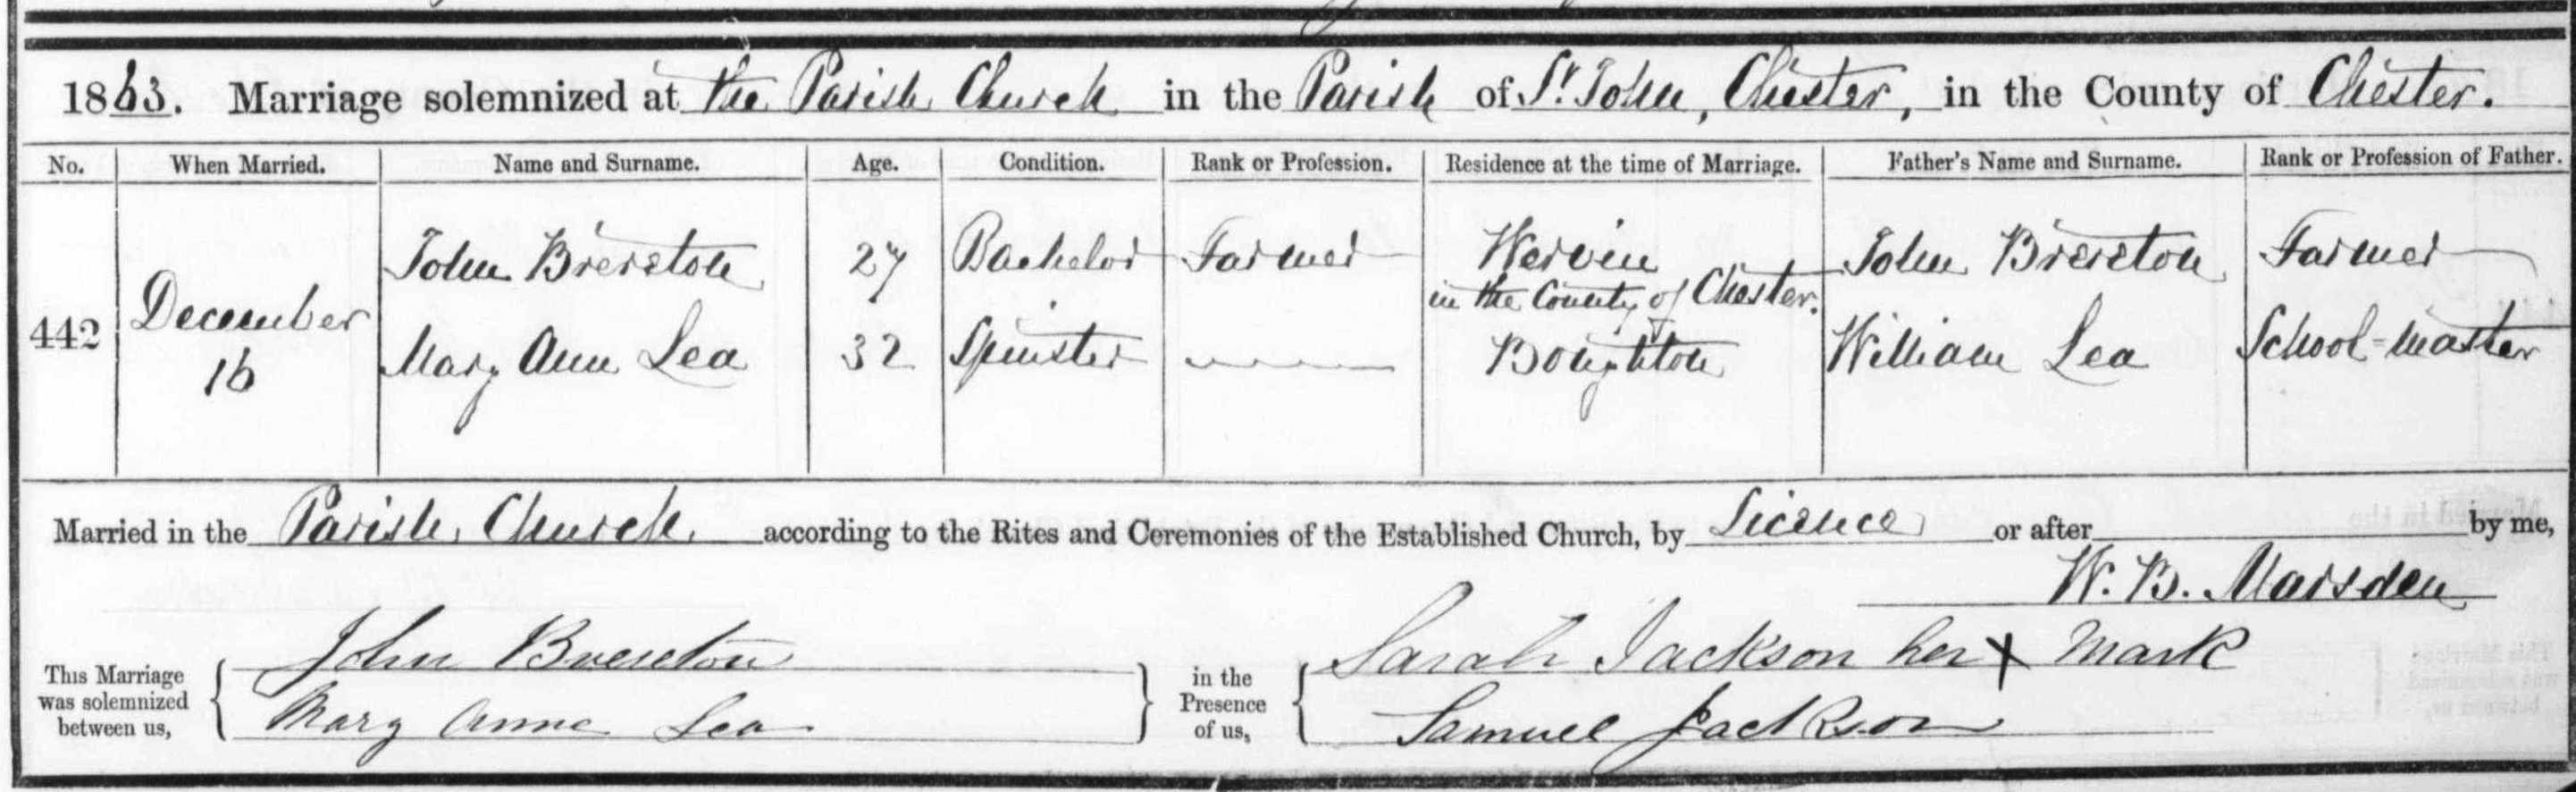 1863. Marriage solemnized at the Parish Church in the Parish of St. John, Chester, in the County of Chester.
No. When Married. Name and Surname. Age. Condition. Rank or Profession. Residence at the time of Marriage. Father's Name and Surname. Rank or Profession of Father.
John Brereton 27 Bachelor Farmer Wervin John Brereton Farmer
in the County of Chester.
442 December 16 Mary Ann Lea 32 Spinster Boughton William Lea School-master
Married in the Parish Church according to the Rites and Ceremonies of the Established Church, by Licence or after by me,
W. B. Marsden
This Marriage was solemnized between us, John Brereton in the Presence of us, Sarah Jackson her X Mark
Mary Anne Lea Samuel Jackson